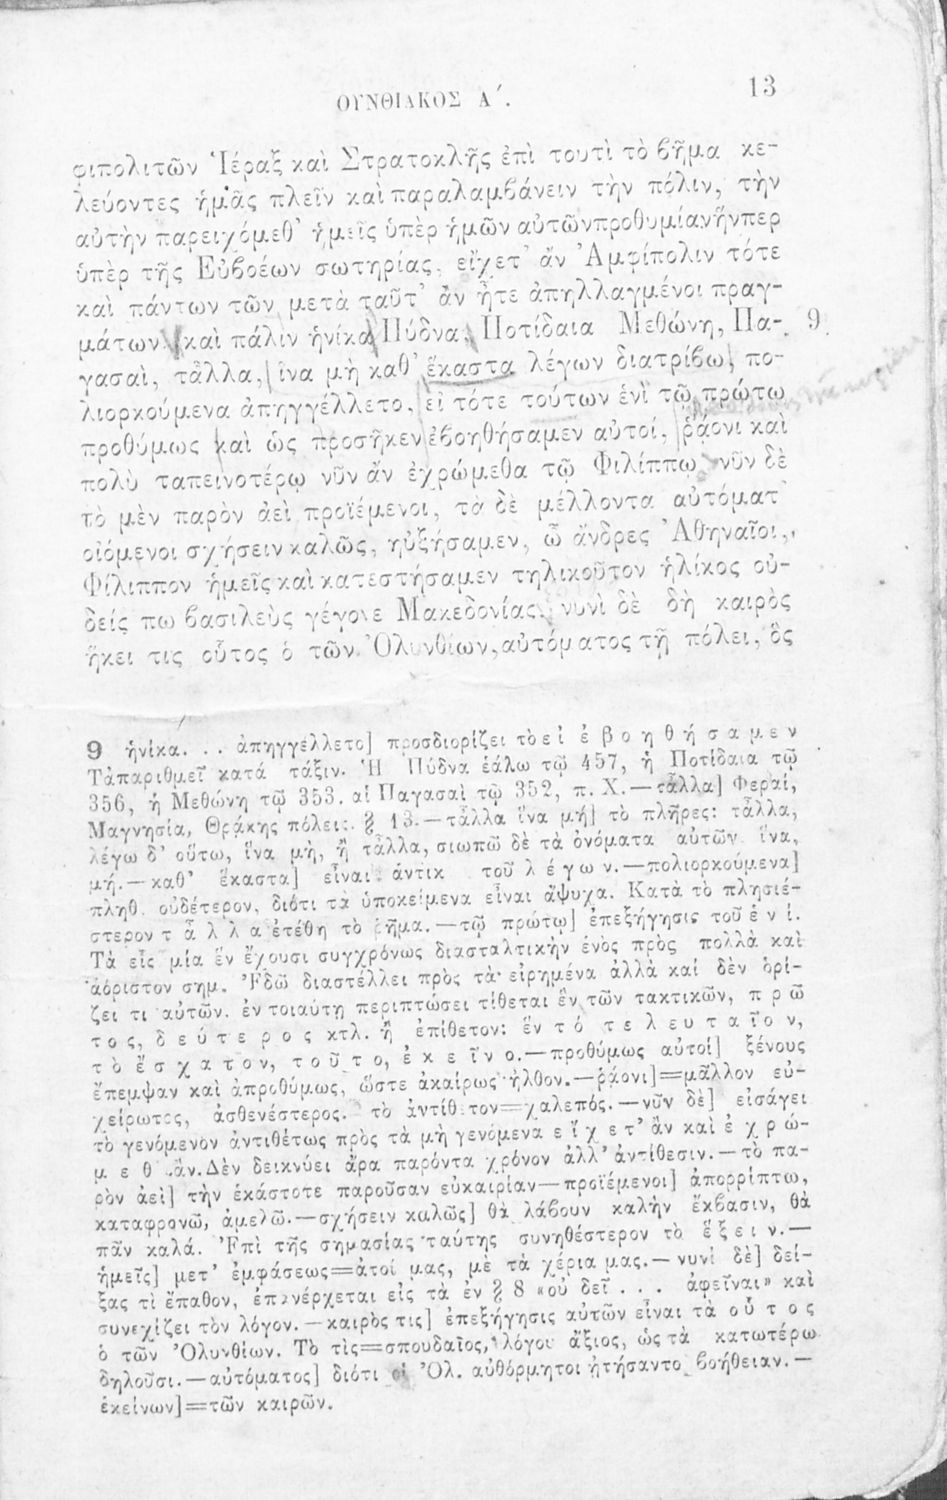 ΟΥΝΘΙΑΚΟΣ Α΄.
13
φιπολιτῶν Ἱέραξ καὶ Στρατοκλῆς ἐπὶ τουτὶ τὸ βῆμα κε-
λεύοντες ἡμᾶς πλεῖν καὶ παραλαμβάνειν τὴν πόλιν, τὴν
αὐτὴν παρειχόμεθ' ἡμεῖς ὑπὲρ ἡμῶν αὐτῶν προθυμίαν ἥνπερ
ὑπὲρ τῆς Εὐβοέων σωτηρίας, εἴχετ' ἂν Ἀμφίπολιν τότε
καὶ πάντων τῶν μετὰ ταῦτ' ἂν ἦτε ἀπηλλαγμένοι πραγ-
μάτων. καὶ πάλιν ἡνίκα Πύδνα, Ποτίδαια Μεθώνη, Πα- 9
γασαὶ, τἆλλα, ἵνα μὴ καθ' ἕκαστα λέγων διατρίβω, πο-
λιορκούμενα ἀπηγγέλλετο, εἰ τότε τούτων ἑνὶ τῷ πρώτῳ
προθύμως καὶ ὡς προσῆκεν ἐβοηθήσαμεν αὐτοί, ῥᾴονι καὶ
πολὺ ταπεινοτέρῳ νῦν ἂν ἐχρώμεθα τῷ Φιλίππῳ. νῦν δὲ
τὸ μὲν παρὸν ἀεὶ προϊέμενοι, τὰ δὲ μέλλοντα αὐτόματ'
οἰόμενοι σχήσειν καλῶς, ηὐξήσαμεν, ὦ ἄνδρες Ἀθηναῖοι,
Φίλιππον ἡμεῖς καὶ κατεστήσαμεν τηλικοῦτον ἡλίκος οὐ-
δείς πω βασιλεὺς γέγονε Μακεδονίας. νυνὶ δὲ δὴ καιρὸς
ἥκει τις οὗτος ὁ τῶν Ὀλυνθίων, αὐτόματος τῇ πόλει, ὃς
9 ἡνίκα. . . ἀπηγγέλλετο] προσδιορίζει τὸ εἰ ἐβοηθήσαμεν
Τἀπαριθμεῖ κατά τάξιν. Ἡ Πύδνα ἑάλω τῷ 457, ἡ Ποτίδαια τῷ
356, ἡ Μεθώνη τῷ 353. αἱ Παγασαὶ τῷ 352, π. Χ.—τἆλλα] Φεραί,
Μαγνησία, Θρᾴκης πόλεις. § 13.—τἆλλα ἵνα μή] τὸ πλῆρες: τἆλλα,
λέγω δ' οὕτω, ἵνα μὴ, ἢ τἆλλα, σιωπῶ δὲ τὰ ὀνόματα αὐτῶν ἵνα,
μή.—καθ' ἕκαστα] εἶναι ἀντικ τοῦ λέγων.—πολιορκούμενα]
πληθ. οὐδέτερον, διότι τὰ ὑποκείμενα εἶναι ἄψυχα. Κατὰ τὸ πλησιέ-
στερον τἆλλα ἐτέθη τὸ ῥῆμα.—τῷ πρώτῳ] ἐπεξήγησις τοῦ ἑνί.
Τὰ εἷς μία ἓν ἔχουσι συγχρόνως διασταλτικὴν ἑνὸς πρὸς πολλὰ καὶ
ἀόριστον σημ. Ἐδῶ διαστέλλει πρὸς τὰ εἰρημένα ἀλλὰ καί δὲν ὁρί-
ζει τι αὐτῶν. ἐν τοιαύτῃ περιπτώσει τίθεται ἓν τῶν τακτικῶν, πρῶ
τος, δεύτερος κτλ. ἢ ἐπίθετον: ἓν τό τελευταῖον,
τὸ ἔσχατον, τοῦτο, ἐκεῖνο.—προθύμως αὐτοί] ξένους
ἔπεμψαν καὶ ἀπροθύμως, ὥστε ἀκαίρως ἦλθον.—ῥᾴονι]=μᾶλλον εὐ-
χείρωτος, ἀσθενέστερος. τὸ ἀντίθετον=χαλεπός.—νῦν δὲ] εἰσάγει
τὸ γενόμενον ἀντιθέτως πρὸς τὰ μὴ γενόμενα εἴχετ' ἂν καὶ ἐχρώ-
μεθ ἄν. Δὲν δεικνύει ἄρα παρόντα χρόνον ἀλλ' ἀντίθεσιν.—τὸ πα-
ρὸν ἀεὶ] τὴν ἑκάστοτε παροῦσαν εὐκαιρίαν—προϊέμενοι] ἀπορρίπτω,
καταφρονῶ, ἀμελῶ.—σχήσειν καλῶς] θὰ λάβουν καλὴν ἔκβασιν, θὰ
πᾶν καλά. Ἐπὶ τῆς σημασίας ταύτης συνηθέστερον τὸ ἕξειν.—
ἡμεῖς] μετ' ἐμφάσεως=ἀτοί μας, μὲ τὰ χέρια μας.—νυνὶ δὲ] δεί-
ξας τί ἔπαθον, ἐπανέρχεται εἰς τὰ ἐν § 8 «οὐ δεῖ . . . ἀφεῖναι» καὶ
συνεχίζει τὸν λόγον.—καιρὸς τις] ἐπεξήγησις αὐτῶν εἶναι τὰ οὗτος
ὁ τῶν Ὀλυνθίων. Τὸ τὶς=σπουδαῖος, λόγου ἄξιος, ὡς τὰ κατωτέρω
δηλοῦσι.—αὐτόματος] διότι οἱ Ὀλ. αὐθόρμητοι ᾐτήσαντο βοήθειαν.—
ἐκείνων]=τῶν καιρῶν.